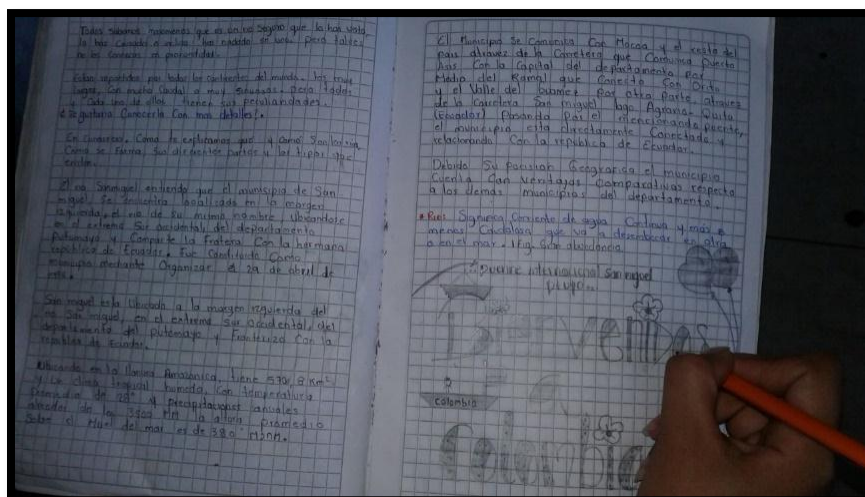 Todos sabemos que es un río Seguro que la han visto,
la has Cruzado o incluso has nadado en uno pero
no los Conoces a profundidad.
Estan repartidos por todos los Continentes del mundo. los muy
largos, Con mucho Caudal o muy sinuosos. pero todos
y Cada uno de ellos tienen sus peculiaridades.
¿Te gustaria Conocerla Con mas detalles?.
Como te explicamos que y como Son los rios
Como se Forma, Sus diferentes partes y los tipos que
existen.
El rio Sanmiguel entiendo que el municipio de San
miguel, Se encuentra localizada en la margen
izquierda, el rio de su mismo nombre Ubicandote
en el extremo Sur occidental, del departamento
putumayo y Comparte la Frotera Con la hermana
republica de Ecuador. Fue Constituido Como
municipio mediante Organizar 29 de abril de
San miguel esta Ubicado a la margen izquierda del
rio San miguel, en el extremo sur occidental, del
departamento del putumayo y Fronteriza Con la
republica de Ecuador.
Ubicando en la llanura Amazonica, tiene 570,8 Km²
y un clima tropical humedo, Con temperatura
promedio de 28° y precipitaciones anuales
alrededor de los 3900 MM la altura promedio
Sobre el Nivel del mar es de 380 MSNM.
El Municipio Se Comunica Con Mocoa y el resto del
pais atravez de la Carretera que Comunica Puerto
Asis Con la Capital del departamento por
Medio del Ramal que Conecta Con Orito
y el Valle del Guamez por otra parte atraves
de la Carretera San miguel, lago Agrario, Quito
(Ecuador) Pasando Por el mencionando puente,
el municipio esta directamente Conectado y
relacionando Con la republica de Ecuador.
Debido Su Posicion Geografica el municipio
Cuenta Con Ventajas Comparativas respecto
a los demas municipios del departamento.
* Rio: Significa Corriente de agua Continua y más o
menos Caudalosa que va a desembocar en otra
o en el mar. Fig. Gran abundancia.
puente internacional San miguel
putyo.
Bienvenidos
a
colombia
Colombia